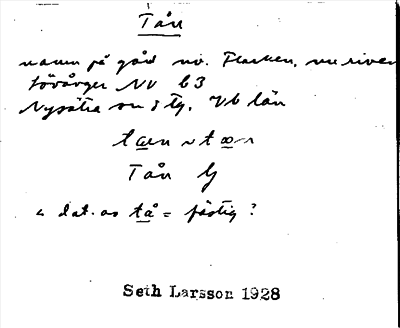 Tån
namn på gård nv. Flarken, nu riven
Lövånger NV b3
Nysätra sn 3 tg. Vb län
Tån
dat. av tå = fästig ?
Seth Larsson 1928